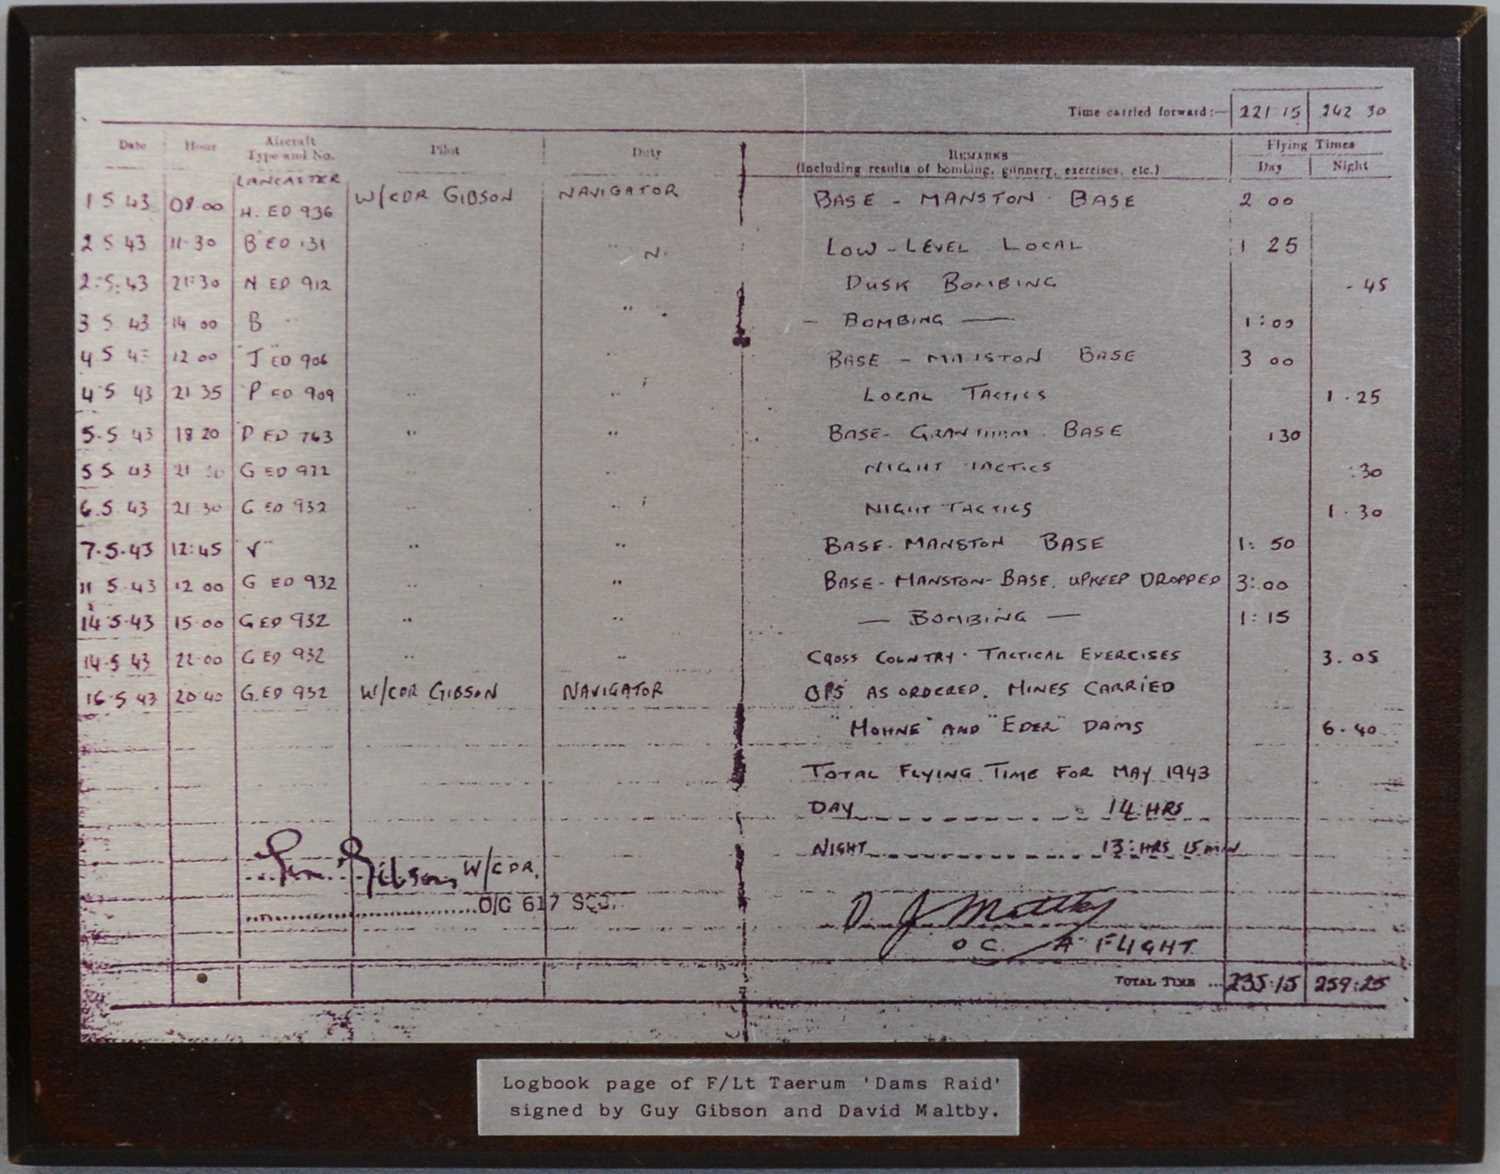 Time carried forward:— 221 15 242 30
Date Hour Aircraft Type and No. Pilot Duty REMARKS (Including results of bombing, gunnery, exercises, etc.) Flying Times Day Night
LANCASTER
1 5 43 08 00 H. ED 936 W/CDR GIBSON NAVIGATOR BASE - MANSTON - BASE 2 00
2 5 43 11-30 B ED 131 " N. LOW-LEVEL LOCAL 1 25
2:5:43 21:30 N ED 912 DUSK BOMBING - 45
3 5 43 14 00 B " " - BOMBING — 1:00
4 5 43 12 00 "J" ED 906 BASE - MANSTON BASE 3 00
4 5 43 21 35 P ED 909 " " LOCAL TACTICS 1 - 25
5-5 43 18 20 D ED 763 " " BASE - GRANTHAM - BASE 30
5 5 43 21 G ED 932 " " NIGHT TACTICS :30
6.5.43 21 30 G ED 932 " " NIGHT TACTICS 1 - 30
7.5.43 12:45 "V" " " BASE - MANSTON BASE 1: 50
11 5 43 12 00 G ED 932 " " BASE - MANSTON - BASE. UPKEEP DROPPED 3:00
14.5.43 15.00 G ED 932 " " — BOMBING — 1:15
14.5 43 22.00 G ED 932 " " CROSS COUNTRY - TACTICAL EXERCISES 3.05
16.5 43 20 40 G. ED 932 W/CDR GIBSON NAVIGATOR OPS AS ORDERED. MINES CARRIED
"MOHNE" AND "EDER" DAMS 6.40
TOTAL FLYING TIME FOR MAY 1943
DAY 14 HRS
NIGHT 13:HRS 15 MIN
Gibson W/CDR.
O/C 617 SQD.
D J Maltby
O C. "A" FLIGHT
TOTAL TIME ... 235:15 259:25
Logbook page of F/Lt Taerum 'Dams Raid'
signed by Guy Gibson and David Maltby.